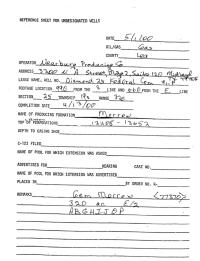 REFERENCE SHEET FOR UNDESIGNATED WELLS
DATE 5/1/00
OIL/GAS Gas
COUNTY Lea
OPERATOR Nearburg Producing Co
ADDRESS 3300 N A Street, Bldg 2, Suite 120 Midland
LEASE, WELL NO. Diamond 35 Federal Com #1
FOOTAGE LOCATION, 990 FROM THE S LINE AND 660 FROM THE E LINE
SECTION 35 TOWNSHIP 19s RANGE 32e
COMPLETION DATE 4/13/00
NAME OF PRODUCING FORMATION Morrow
TOP OF PERFORATIONS
DEPTH TO CASING SHOE
C-123 FILED
NAME OF POOL FOR WHICH EXTENSION WAS ASKED
ADVERTISED FOR HEARING CASE NO.
NAME OF POOL FOR WHICH EXTENSION WAS ADVERTISED
PLACED IN BY ORDER NO. R-
REMARKS Gem Morrow
320 ac E/2
ABGHIJOP